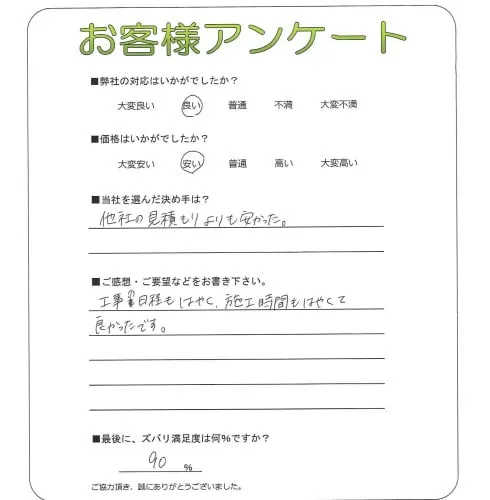 お客様アンケート
■弊社の対応はいかがでしたか？
大変良い 良い 普通 不満 大変不満
■価格はいかがでしたか？
大変安い 安い 普通 高い 大変高い
■当社を選んだ決め手は？
他社の見積もりよりも安かった。
■ご感想・ご要望などをお書き下さい。
工事の日程もはやく、施工時間もはやくて
良かったです。
■最後に、ズバリ満足度は何%ですか？
90 %
ご協力頂き、誠にありがとうございました。